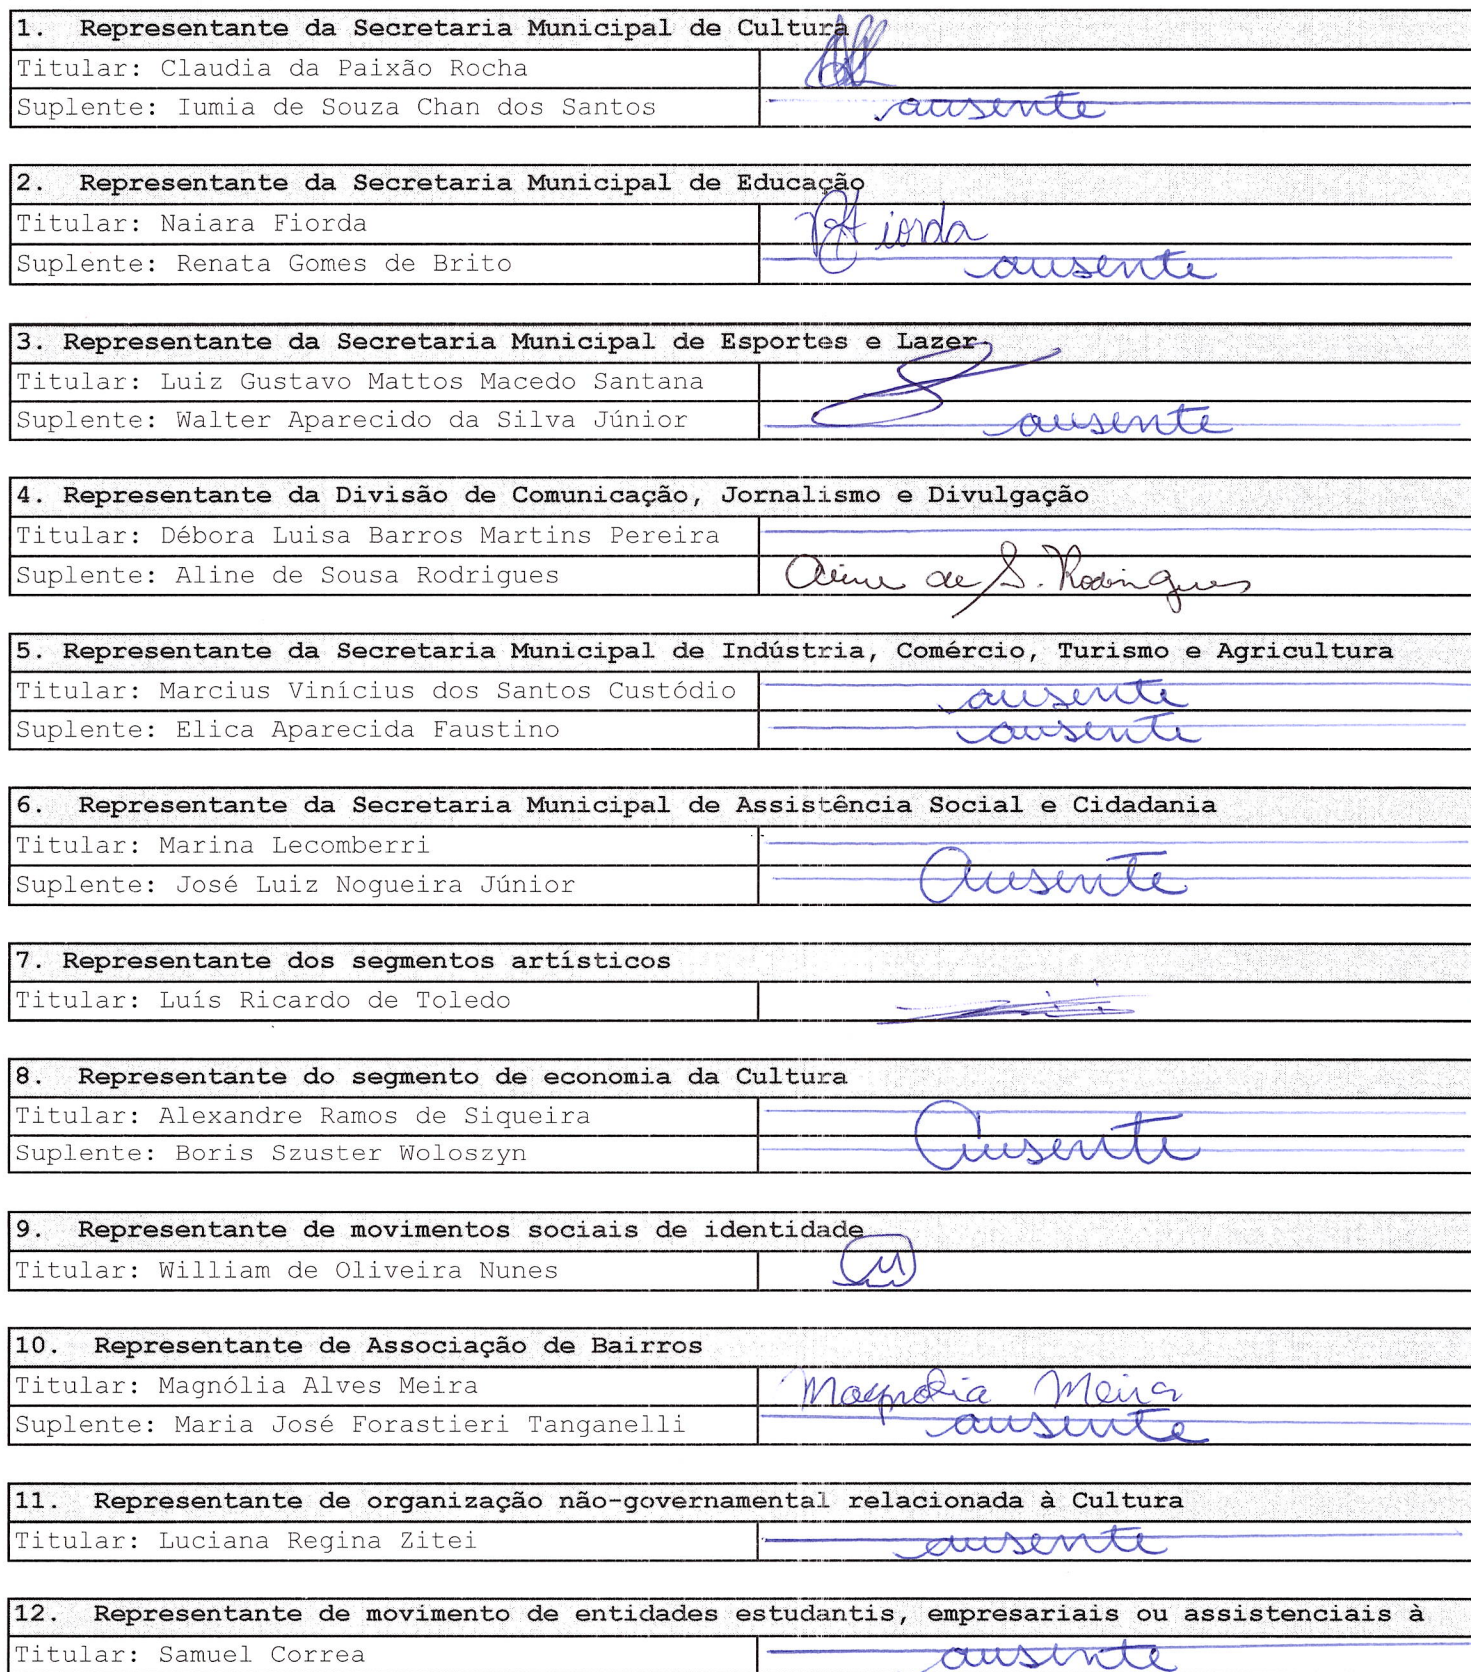 1. Representante da Secretaria Municipal de Cultura
Titular: Claudia da Paixão Rocha
Suplente: Iumia de Souza Chan dos Santos ausente
2. Representante da Secretaria Municipal de Educação
Titular: Naiara Fiorda NFiorda
Suplente: Renata Gomes de Brito ausente
3. Representante da Secretaria Municipal de Esportes e Lazer
Titular: Luiz Gustavo Mattos Macedo Santana
Suplente: Walter Aparecido da Silva Júnior ausente
4. Representante da Divisão de Comunicação, Jornalismo e Divulgação
Titular: Débora Luisa Barros Martins Pereira
Suplente: Aline de Sousa Rodrigues Aline de S. Rodrigues
5. Representante da Secretaria Municipal de Indústria, Comércio, Turismo e Agricultura
Titular: Marcius Vinícius dos Santos Custódio ausente
Suplente: Elica Aparecida Faustino ausente
6. Representante da Secretaria Municipal de Assistência Social e Cidadania
Titular: Marina Lecomberri
Suplente: José Luiz Nogueira Júnior Ausente
7. Representante dos segmentos artísticos
Titular: Luís Ricardo de Toledo
8. Representante do segmento de economia da Cultura
Titular: Alexandre Ramos de Siqueira
Suplente: Boris Szuster Woloszyn Ausente
9. Representante de movimentos sociais de identidade
Titular: William de Oliveira Nunes
10. Representante de Associação de Bairros
Titular: Magnólia Alves Meira Magnolia Meira
Suplente: Maria José Forastieri Tanganelli ausente
11. Representante de organização não-governamental relacionada à Cultura
Titular: Luciana Regina Zitei ausente
12. Representante de movimento de entidades estudantis, empresariais ou assistenciais à
Titular: Samuel Correa ausente